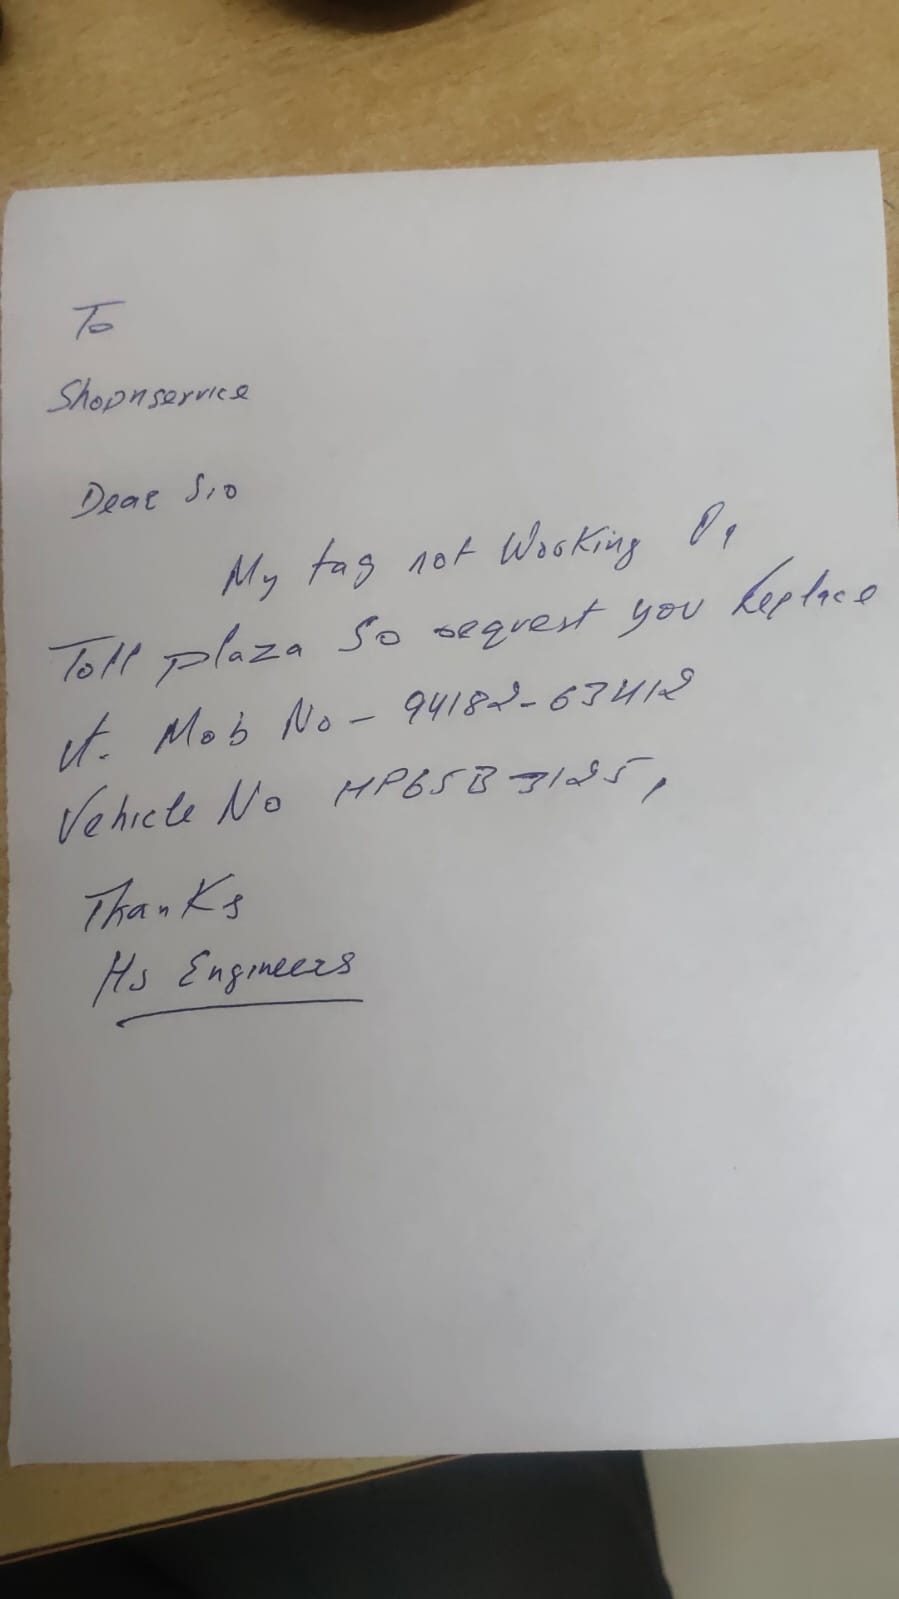 To
Shopnservice
Dear Sir
My tag not Working On
Toll plaza So request you Replace
it. Mob No - 94182-63412
Vehicle No HP65B-3125,
Thanks
Hs Engineers